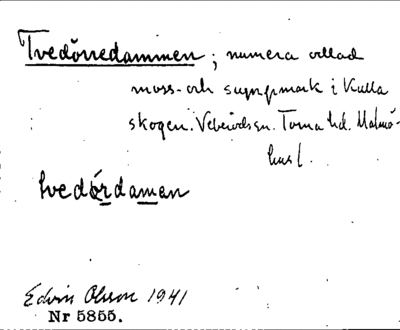 Tvedörredammen; numera odlad
moss- och sumpmark i Kulla
skogen. Veberöds sn. Torna hd. Malmö-
hus l.
tvedö́rdaman
Edvin Olsson 1941
Nr 5855.